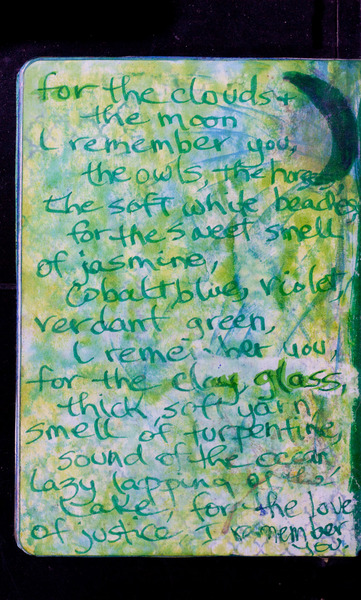 for the clouds +
the moon
I remember you,
the owls, the horses
the soft white beaches
for the sweet smell
of jasmine,
cobalt blue, violet,
verdant green,
I remember you,
for the clay, glass,
thick soft yarn,
smell of turpentine,
sound of the ocean
lazy lapping of the
lake, for the love
of justice I remember
you.